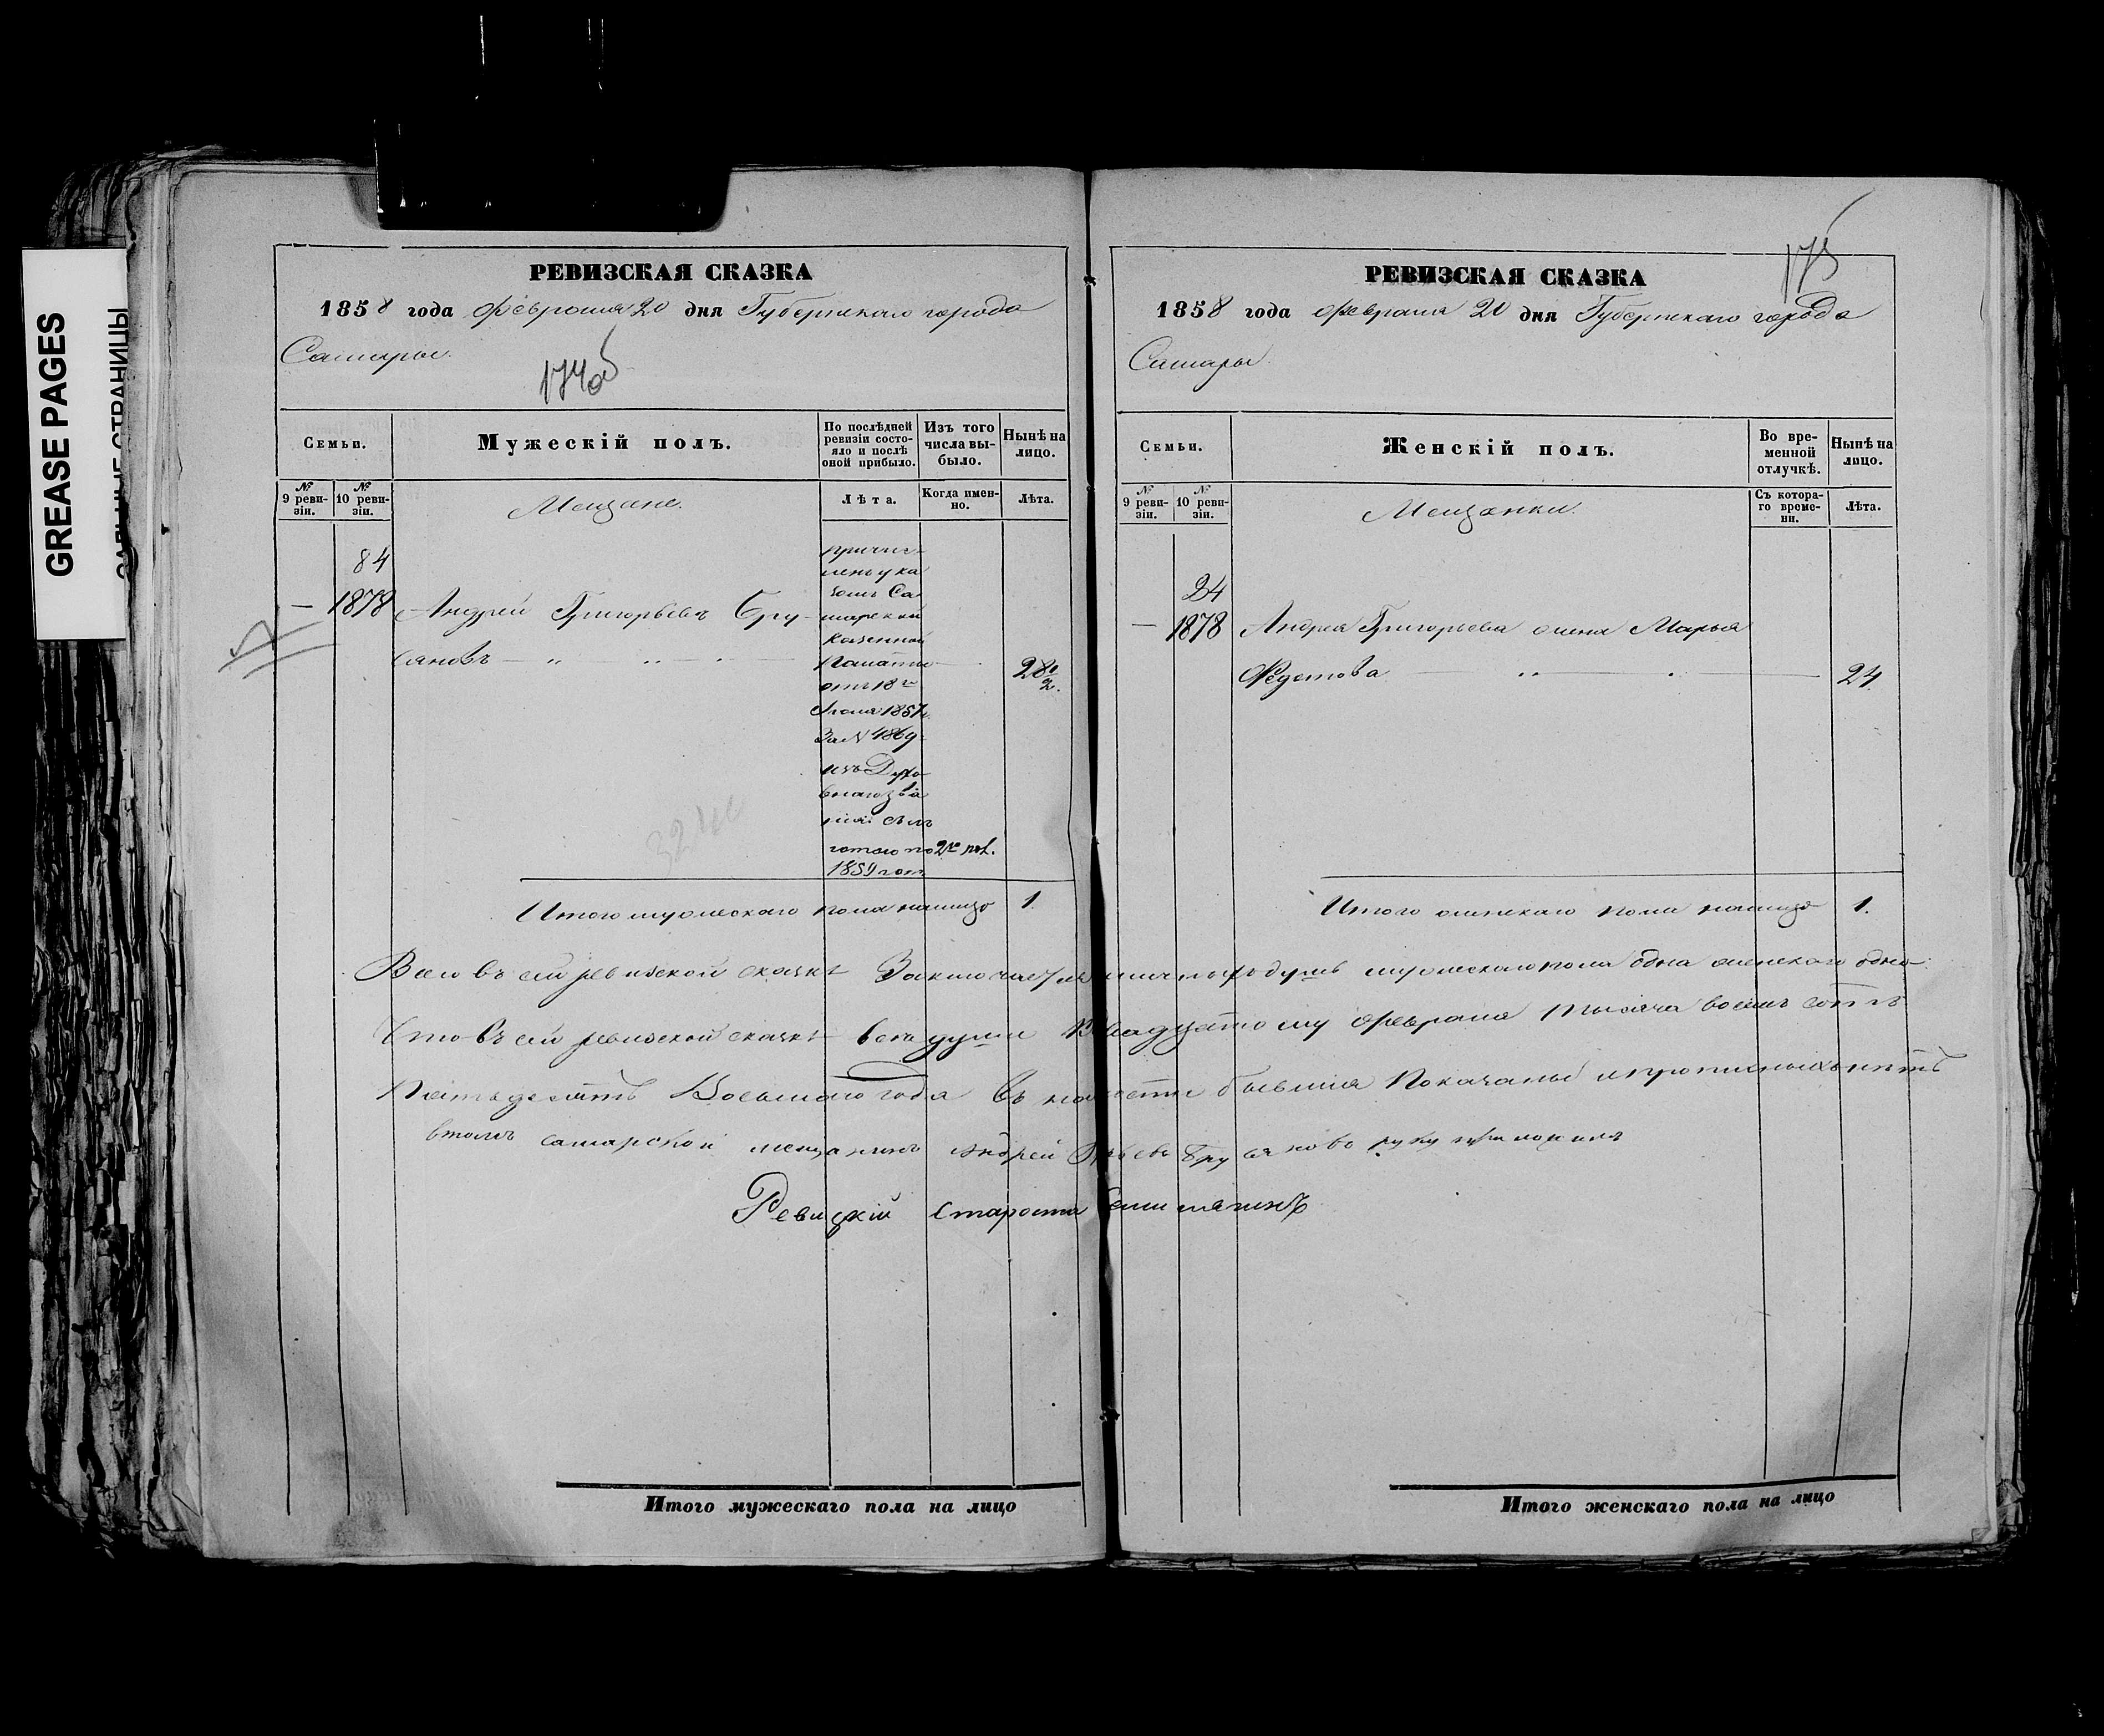 GREASE PAGES
РЕВИЗСКАЯ СКАЗКА
1858 года Февраля 20 дня Губернскаго города
Самары.
174об
Семьи.
Мужескій полъ.
По послѣдней ревизіи состо-
яло и послѣ
оной прибыло.
Изъ того
числа вы-
было.
Нынѣ на
лицо.
№
9 реви-
зіи.
№
10 реви-
зіи.
Мещане.
Лѣта.
Когда имен-
но.
Лѣта.
84
— 1878 Андрей Григорьевъ Бру-
сяновъ
причис-
ленъ ука
зомъ Са
марской
Казенной
Палаты
отъ 18го
1857
За № 4869
изъ Духо
внаго зва
нія съ
2й пол.
28 1/2.
3240
Итого мужескаго пола налицо 1.
РЕВИЗСКАЯ СКАЗКА
175
1858 года Февраля 20 дня Губернскаго города
Самары.
Семьи.
Женскій полъ.
Во вре-
менной
отлучкѣ.
Нынѣ на
лицо.
№
9 реви-
зіи.
№
10 реви-
зіи.
Мещанки.
Съ котора-
го време-
ни.
Лѣта.
— 1878 Андрея Григорьева жена Марья
Федотова 24.
Итого женскаго пола налицо 1.
Всего въ сей ревизской сказкѣ Заключается душъ мужескаго пола одна женскаго одна
Что въ сей ревизской сказкѣ всѣ души Двадцатому Февраля тысяча восемь сотъ
Пятьдесятъ Восьмаго года въ бывшія Показаны и прописныхъ нѣтъ
втомъ самарской мещанинъ Андрей Брусяновъ руку приложилъ
Ревизкій Староста
Итого мужескаго пола на лицо
Итого женскаго пола на лицо